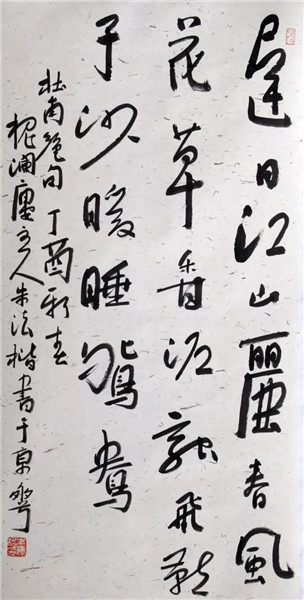 遲日江山麗春風
花草香泥融飛燕
子沙暖睡鴛鴦
杜甫絕句丁酉新春
瀾廬主人朱法楷書于